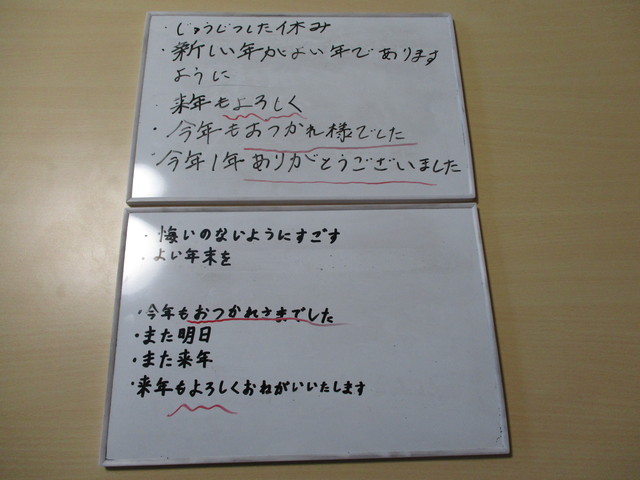 ・じゅうじつした休み
・新しい年がよい年であります
ように
・来年もよろしく
・今年もおつかれ様でした
・今年1年ありがとうございました
・悔いのないようにすごす
・よい年末を
・今年もおつかれさまでした
・また明日
・また来年
・来年もよろしくおねがいいたします